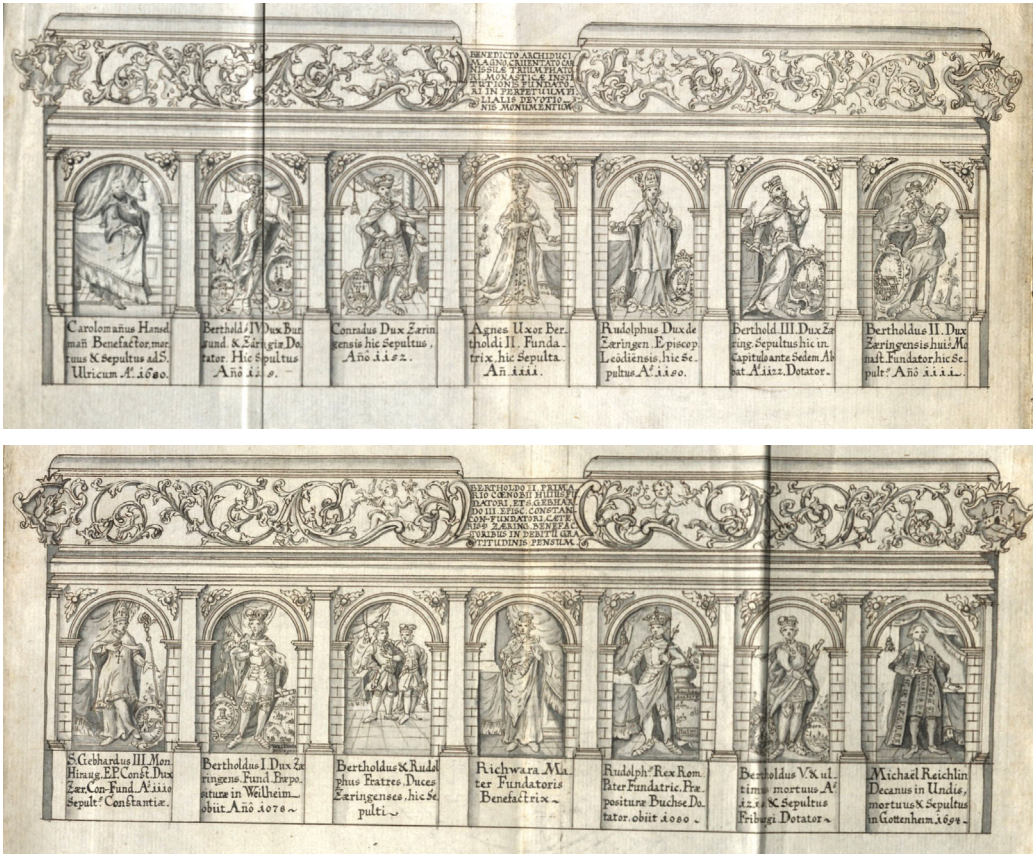 BENEDICTO ARCHIDUCI
MAGNO, CRUENTATO CAR
NIS SUÆ TRIUMPHATO
RI MONASTICÆ INSTI
TUTIONIS FUNDATO-
RI IN PERPETUUM FI-
LIALIS DEVOTIO-
NIS MONUMENTUM
Carolomañus Hansel
mañ Benefactor, mor
tuus & Sepultus ad S.
Ulricum Aº. 1680.
Berthold9 IV Dux Bur
gund. & Zäringiæ Do
tator. Hic Sepultus
Añô
Conradus Dux Zærin
gensis hic Sepultus,
Añô 1152.
Agnes Uxor Ber-
tholdi II. Funda-
trix, hic Sepulta.
Añ. 1111.
Rudolphus Dux de
Zæringen. Episcop.
Leödiënsis, hic Se-
pultus Aº. 1180.
Berthold. III. Dux Zæ
ring. Sepultus hic in
Capitulo ante Sedem Ab
bat. Aº. 1122. Dotator-
Bertholdus II. Dux
Zæringensis, hui9 Mo
nast. Fundator, hic Se
pult9. Añô 1111.
BERTHOLDO II. PRIMA
RIO CŒNOBII HUIUS FU
DATORI, ET S. GEBHAR
DO III. EPISC. CONSTAN.
CON-FUNDATORI, CÆTE
RISQ ZÆRING. BENEFAC
TORIBUS IN DEBITÜ GRA
TITUDINIS PENSUM.
S. Gebhardus III. Mon.
Hiraug. EP. Const. Dux
Zær. Con-Fund. Aº. 1110
Sepult9. Constantiæ.
Bertholdus I. Dux Zæ
ringens. Fund. Præpo-
situræ in Weilheim
obiit Añô 1078~
Bertholdus & Rudol
phus Fratres, Duces
Zæringenses, hic Se
pulti~
Richwara Ma
ter Fundatoris
Benefactrix~
Rudolph9. Rex Rom.
Pater Fundatric. Præ-
posituræ Buchse Do
tator. obiit 1080~
Bertholdus V. & ul
timus mortuus Aº.
1218 & Sepultus
Friburgi Dotator~
Michaël Reichlin
Decanus in Undis,
mortuus & Sepultus
in Gottenheim 1694~